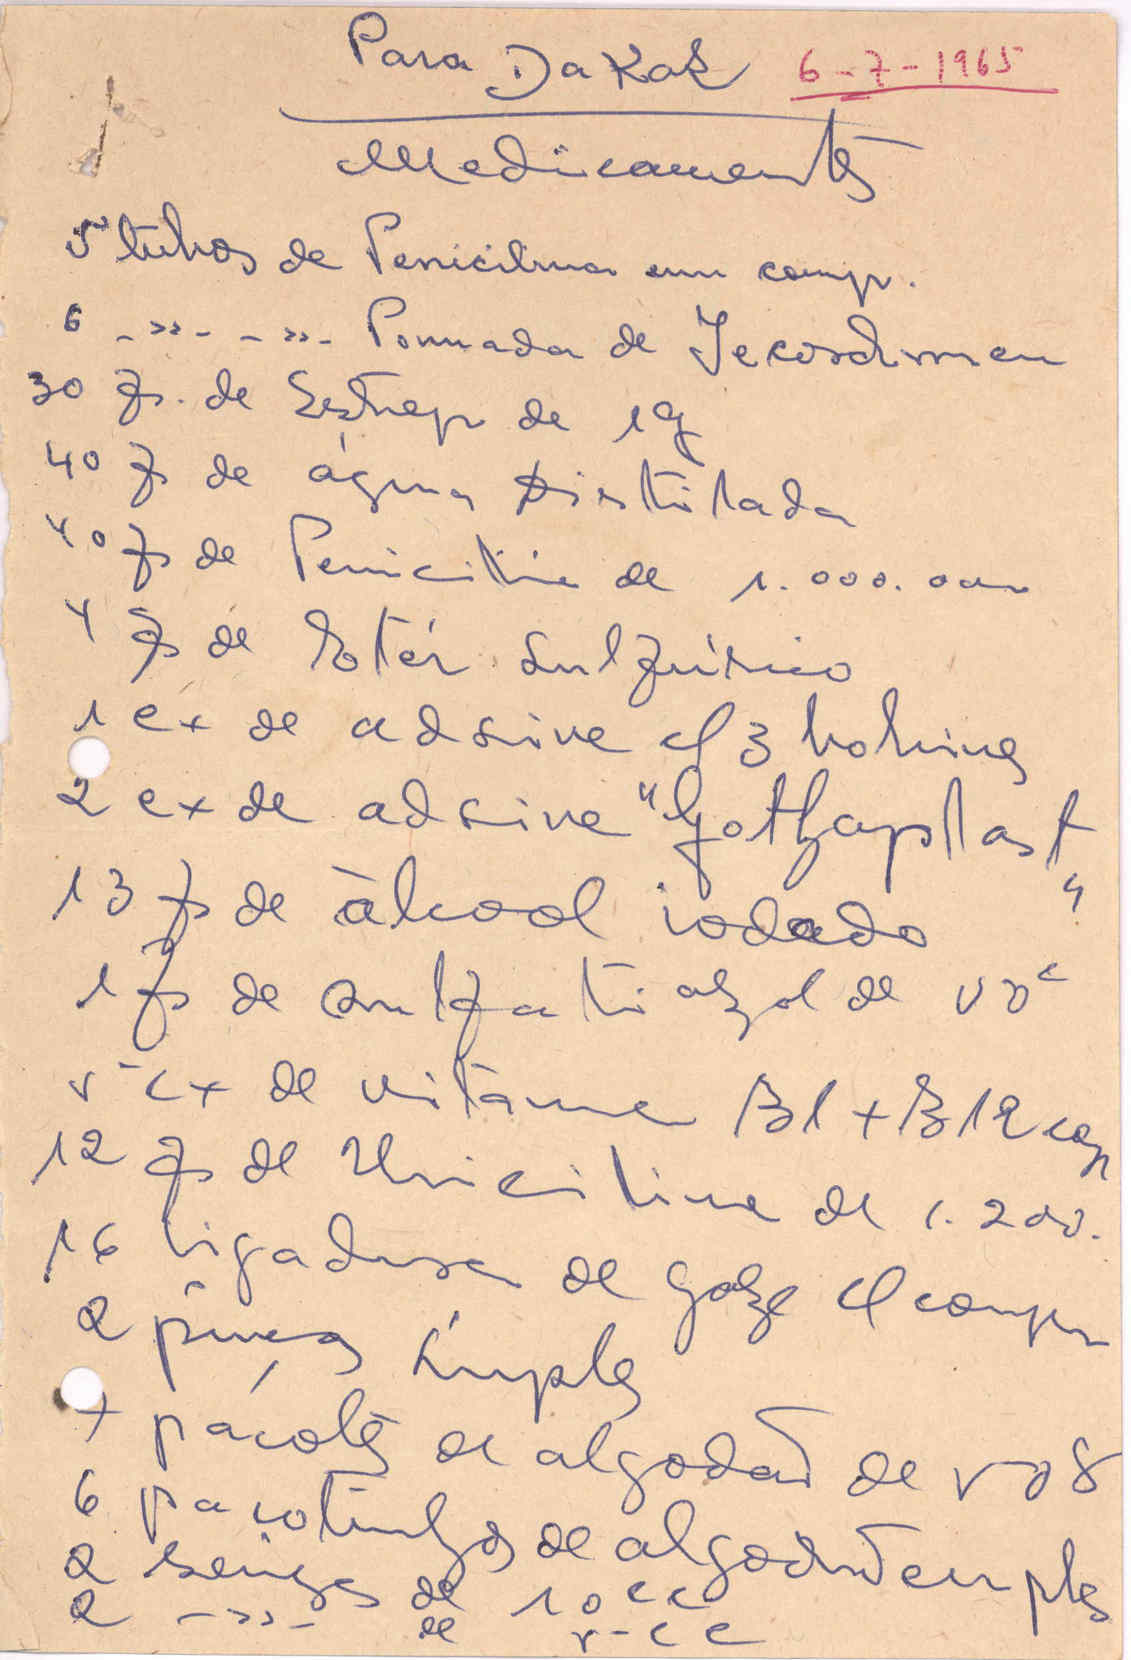 Para Dakar 6-7-1965
Medicamentos
5 tubos de Penicilina em comp.
6 -»- -»- Pommada de
30 fs. de Estrep de 1g
40 fs de água Distilada
40 fs de Penicilina de 1.000.000
4 fs de Eotér Sulfúrico
1 cx de adsive c/ 3 bobines
2 cx de adsive "Gothaplast"
13 fs de àlcool iodado
1 fs de Sulfatiazol de
5 cx de vitamine B1+B12 comp
12 fs de de 1.200.
16 ligadura de gaze c/ comp
2 pinças simples
7 pacotes de algodão de
6 pacotinhos de algodão simples
2 seringes de 10 cc
2 -»- de 5 cc